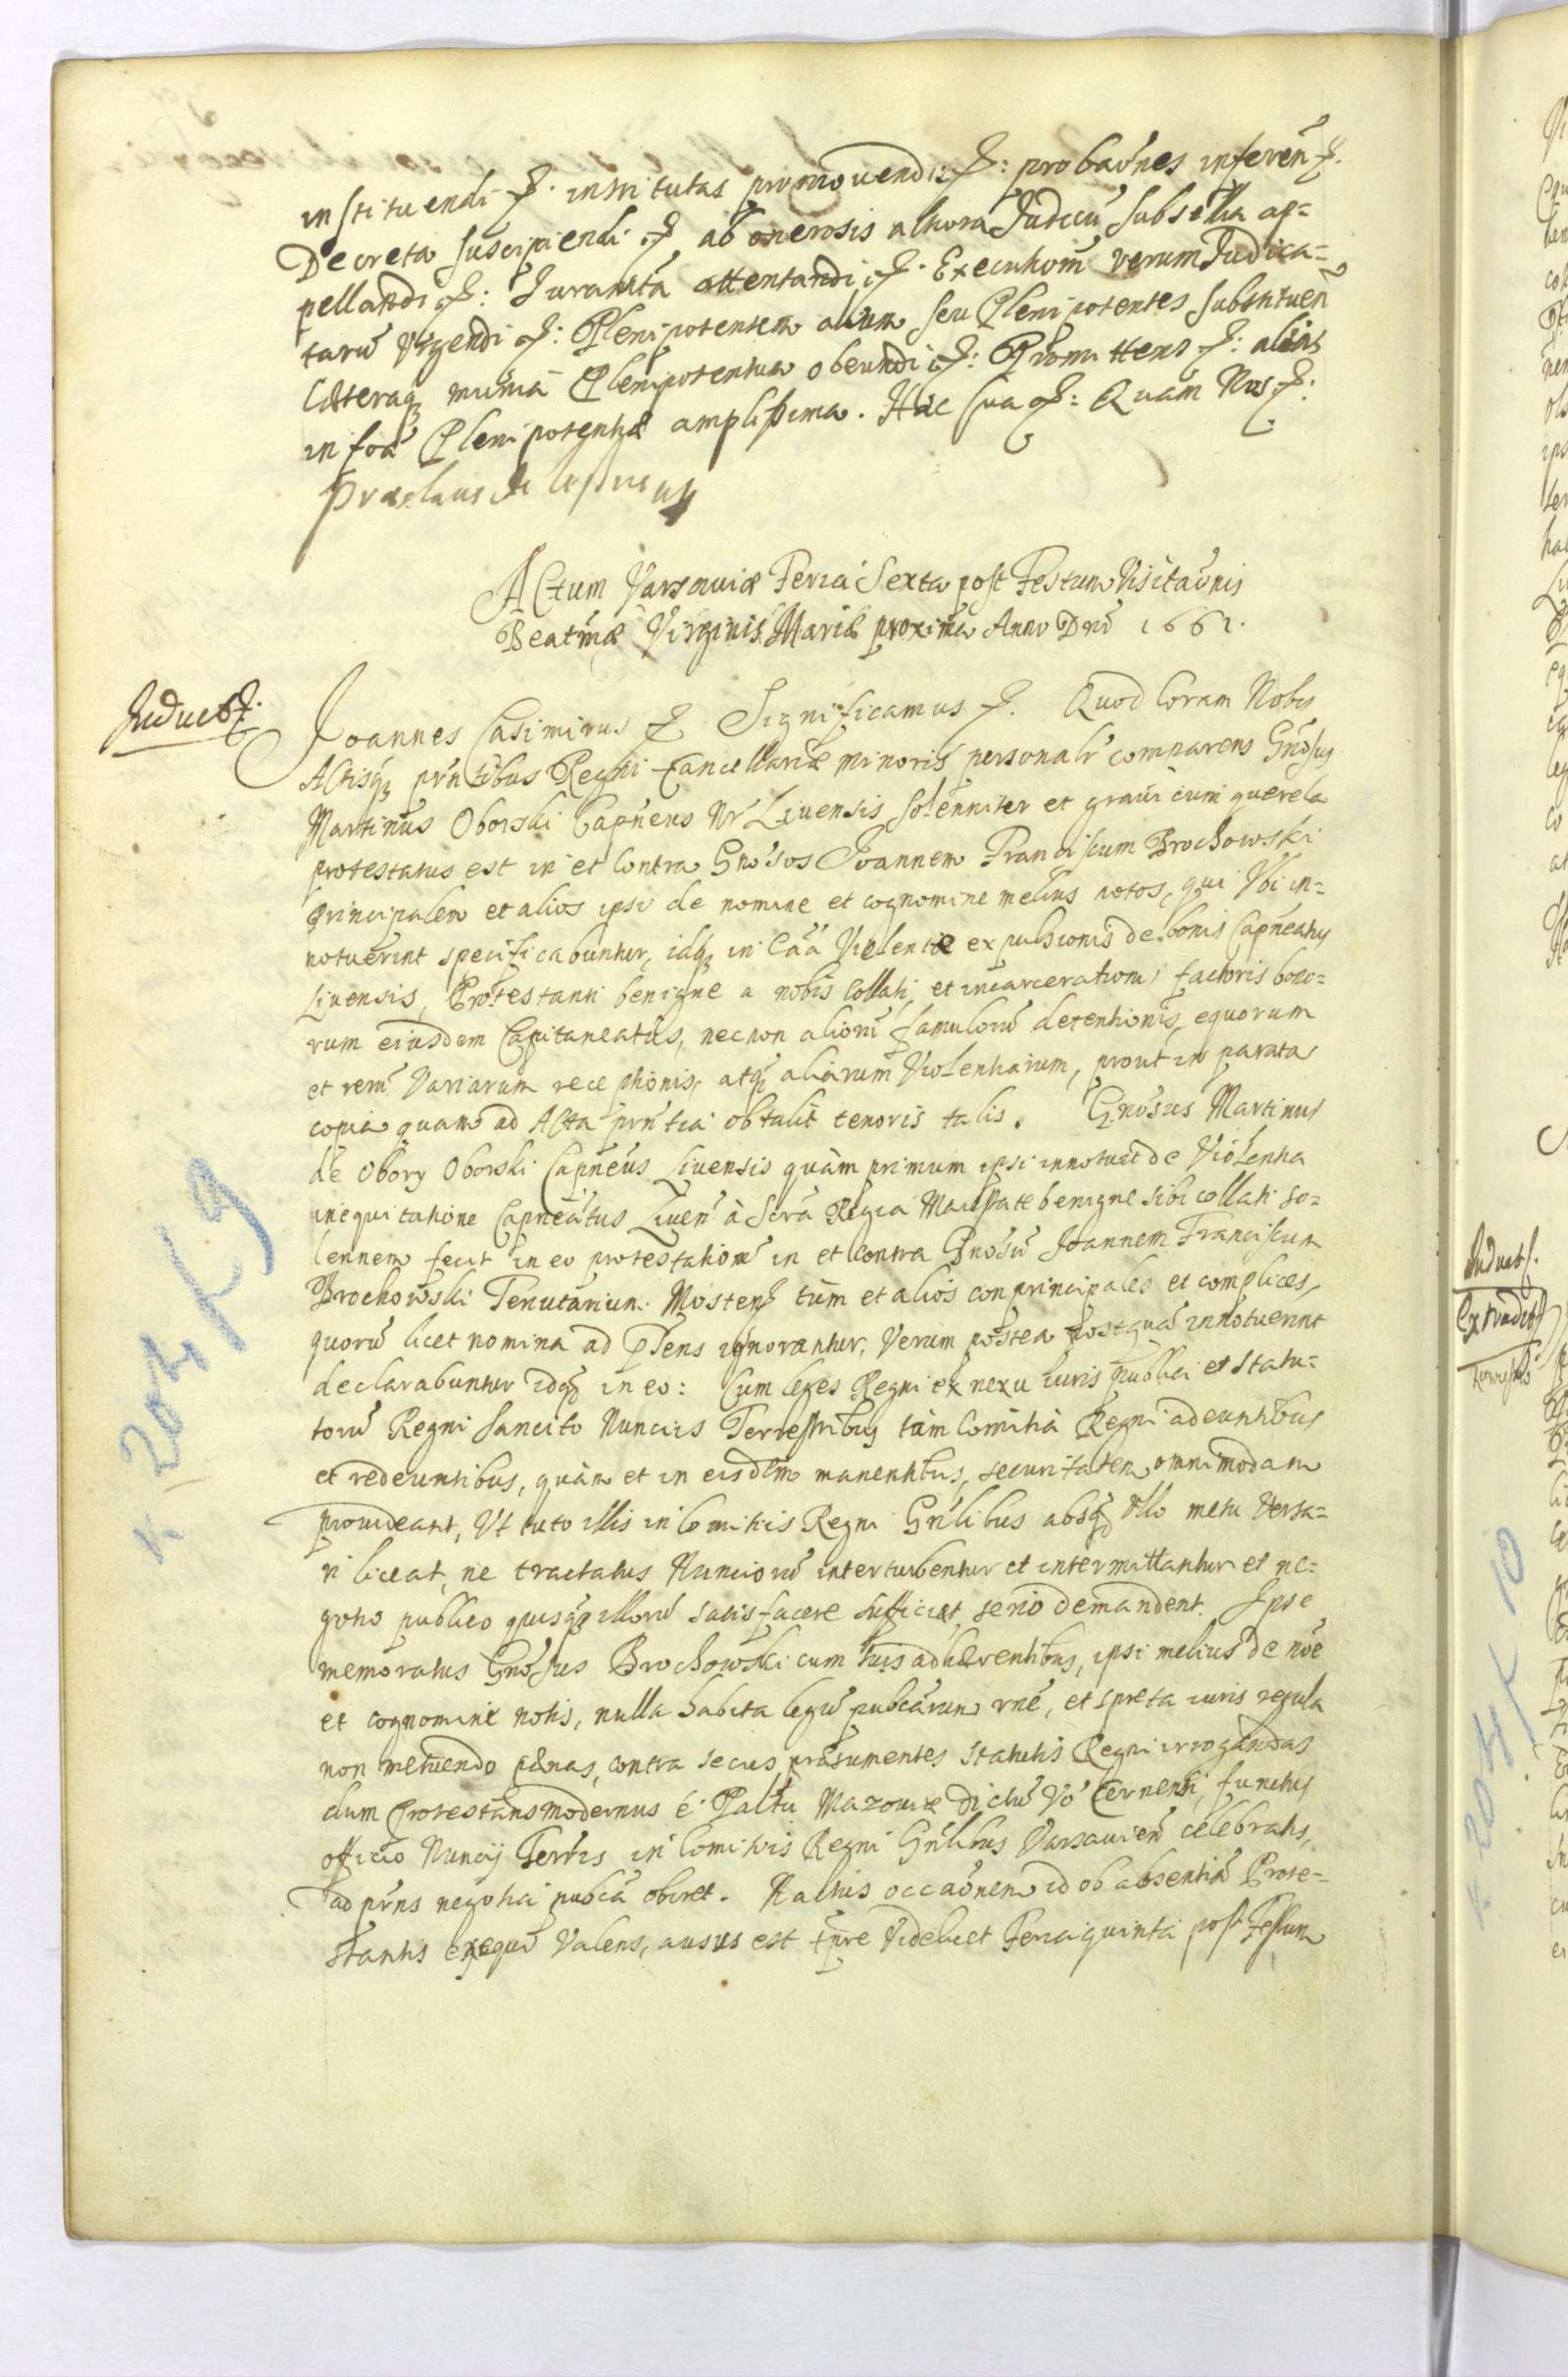 instituendi etc. institutas promovendi etc: probaōnes inferēn etc.
Decreta suscipiendi etc ab onerosis altiora Judicū subsellia ap=
pellandi etc: Juramēta attentandi etc. Executionē rerum Judica=
tarū Urgendi etc: Plenipotentem alium seu Plenipotentes substituen̄
Cæteraq munia Plenipotentiæ obeundi etc: Promittens etc: alias
in foā Plenipotentiæ amplissima. Hac sua etc: Quam Nos etc:
Actum Varsaviæ Feria Sexta post Festum Visitaōnis
Beatmæ Virginis Mariæ proxima Anno Dnī 1661.
Induct.
Joannes Casimirus etc Significamus etc. Quod Coram Nobis
Actisq prntibus Regni Cancellariæ minoris personalr comparens Gnosus
Martinus Oborski Capneus Nr Livensis solenniter et gravi cum querela
protestatus est in et contra Gnosos Joannem Franciscum Brochowski
principalem et alios ipsi de nomine et cognomine melius notos, qui Ubi in=
notuerint specificabuntur, idq in Caa Violentæ expulsionis de bonis Capneatus
Livensis, Protestanti benigne a nobis Collati, et incarcerationis factoris bono=
rum eiusdem Capitaneatus, necnon aliorū famulorū detentionis, equorum
et rerū Variarum receptionis, atq aliarum Violentiarum, prout in parata
copia quam ad Acta prntia obtulit tenoris talis. Gnosus Martinus
de Obory Oborski Capneus Livensis quàm primum ipsi innotuit de Violenta
inequitatione Capneatus Liven à Scra Regia Maiestate benigne sibi collati so=
lennem fecit in eo protestationē in et contra Gnosū Joannem Franciscum
Brochowski Tenutarium Mosten tùm et alios conprincipales et complices,
quorū licet nomina ad Psens ignorantur, Verum postea postquā innotuerint
declarabuntur idq in eo: Cum leges Regni ex nexu iuris publici et Statu=
torū Regni Sancito Nunciis Terrestribus tàm Comitia Regni adeuntibus
et redeuntibus, quàm et in eisdem manentibus, securitatem omnimodam
provideant, Ut tuto illis in Comitiis Regni Gnlibus absq Ullo metu Versa=
ri liceat, ne tractatus Nunciorū interturbentur et intermittantur et ne=
gotio publico quisq illorū satisfacere sufficiat, serio demandent. Ipse
memoratus Gnosus Brochowski cum suis adhærentibus, ipsi melius de nōe
et cognomine notis, nulla habita legū pubcarum rne, et spreta iuris regula
non metuendo pænas, contra secus præsumentes Statutis Regni irrogandas
dum Protestans modernus è Paltu Mazoviæ dicto Vo Cernensi, functus
officio Nuncij Terris in Comitiis Regni Gnlibus Varsavien celebratis,
ad prns negotia pubca obiret. Nactus occaōnem id ob absentiā Prote=
stantis exequi Valens, ausus est tpre Videlicet Feria quinta post Festum
K 204 K 9
Induct.
K 204 K 10